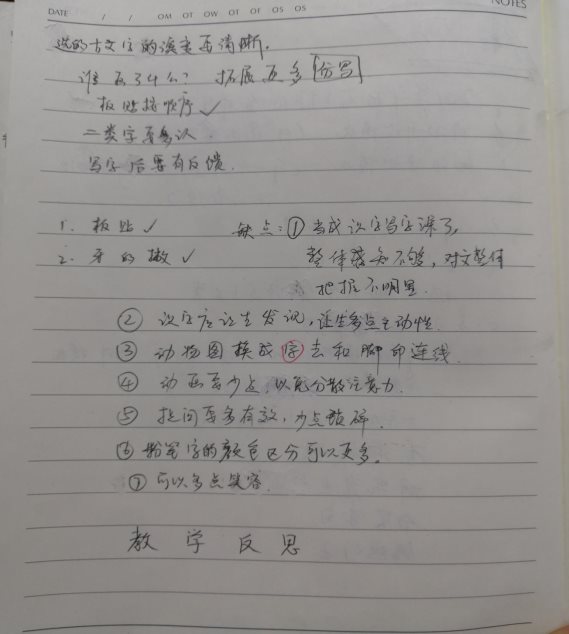 DATE / / OM OT OW OT OF OS OS NOTES
选的古文字的演变要清晰。
谁画了什么？拓展更多 仿写
板贴按顺序 ✓
二类字要多认
写字后要有反馈.
1. 板贴 ✓ 缺点：① 当成识字写字课了,
2. 牙的撇 ✓ 整体感知不够，对文整体
把握不明显.
② 识字应让生发现，让生多点主动性.
③ 动物图换成字去和脚印连线.
④ 动画要少点，以免分散注意力.
⑤ 提问要多有效，少点琐碎.
⑥ 粉笔字的颜色区分可以更多。
⑦ 可以多点笑容.
教 学 反 思